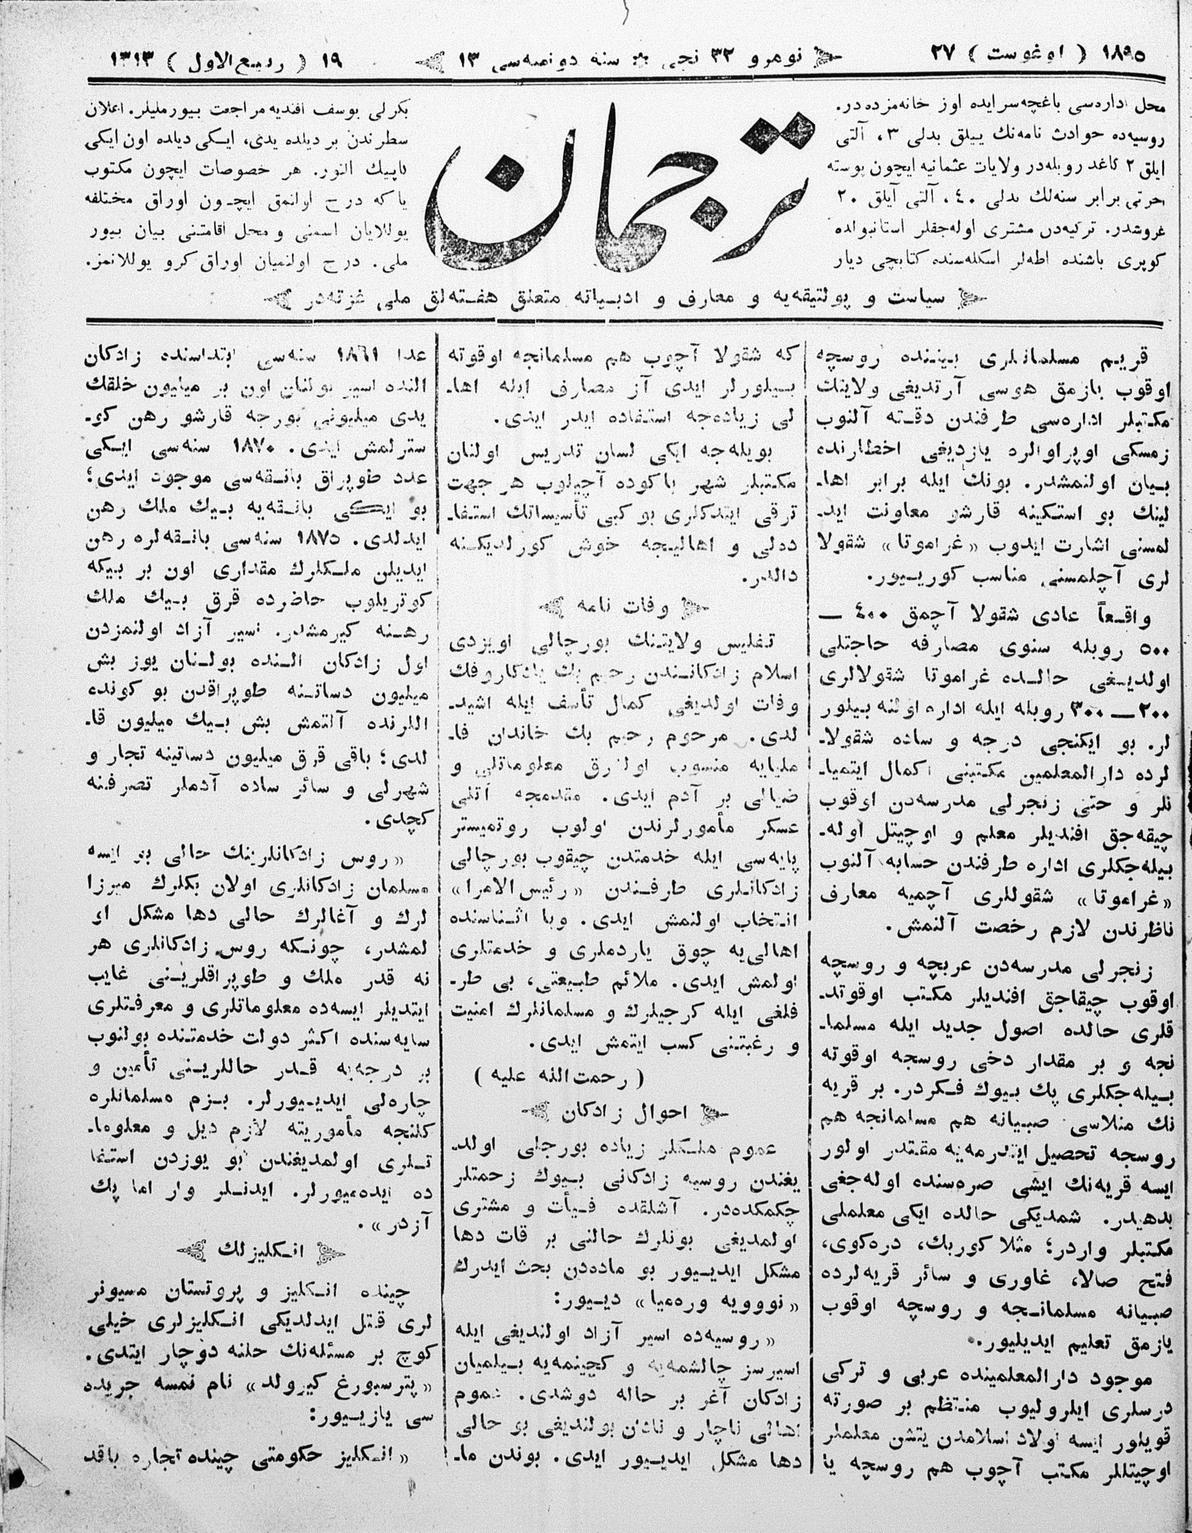 ١٨٩٥ ( اوغوست ) ٢٧
نومرو ٣٢ نجی * سنه دونمه‌سی ١٣
١٩ ( ربیع الاول ) ١٣١٣
محل اداره‌سی باغچه‌سرایده اوز خانه‌مزده‌در.
روسیه‌ده حوادث نامه‌نك ییللق بدلی ٣، آلتی
ایلق ٢ کاغد روبله‌در ولایات عثمانیه ایچون پوسته
اجرتی برابر سنه‌لك بدلی ٤٠، آلتی آیلق ٢٠
غروشدر. ترکیه‌دن مشتری اوله‌جقلر استانبولده
کوپری باشنده اطه‌لر اسکله‌سنده کتابچی دیار
ترجمان
بکرلی یوسف افندیه مراجعت بیورملیلر. اعلان
سطرندن بر دیلده یدی، ایکی دیلده اون ایکی
کاپیك النور. هر خصوصات ایچون مکتوب
یا که درج اولنمق ایچون اوراق مختلفه
یوللایان اسمنی و محل اقامتنی بیان بیور
ملی. درج اولنمیان اوراق کرو یوللانمز.
سیاست و پولتیقه‌یه و معارف و ادبیاته متعلق هفته‌لق ملی غزته‌در
قریم مسلمانلری بیننده روسچه
اوقوب یازمق هوسی آرتدیغی ولاینك
مکتبلر اداره‌سی طرفندن دقته آلنوب
زمسکی اوپراوالره یازدیغی اخطارنده
بیان اولنمشدر. بونك ایله برابر اها-
لینك بو استکینه قارشو معاونت اید-
لمسنی اشارت ایدوب «غراموتا» شقولا
لری آچلمسنی مناسب کوریور.
واقعاً عادی شقولا آچمق ٤٠٠ —
٥٠٠ روبله سنوی مصارفه حاجتلی
اولدیغی حالده غراموتا شقولالری
٢٠٠ — ٣٠٠ روبله ایله اداره اولنه بیلور
لر. بو ایکنجی درجه و ساده شقولا-
لرده دارالمعلمین مکتبنی اکمال ایتمیا-
نلر و حتی زنجرلی مدرسه‌دن اوقوب
چیقه‌جق افندیلر معلم و اوچیتل اوله-
بیله‌جکلری اداره طرفندن حسابه آلنوب
«غراموتا» شقوللری آچمیه معارف
ناظرندن لازم رخصت آلنمش.
زنجرلی مدرسه‌دن عربچه و روسچه
اوقوب چیقاجق افندیلر مکتب اوقوتد-
قلری حالده اصول جدید ایله مسلما-
نجه و بر مقدار دخی روسچه اوقوته
بیله‌جکلری پك بیوك فکردر. بر قریه
نك منلاسی صبیانه هم مسلمانجه هم
روسچه تحصیل ایتدرمه‌یه مقتدر اولور
ایسه قریه‌نك ایشی صره‌سنده اوله‌جغی
بدهیدر. شمدیکی حالده ایکی معلملی
مکتبلر واردر؛ مثلا کوربك، دره‌کوی،
فتح صالا، غاوری و سائر قریه‌لرده
صبیانه مسلمانجه و روسچه اوقوب
یازمق تعلیم ایدیلیور.
موجود دارالمعلمینده عربی و ترکی
درسلری ایلرولیوب منتظم بر صورته
قویلور ایسه اولاد اسلامدن یتشن معلملر
اوچیتللر مکتب آچوب هم روسچه یا
که شقولا آچوب هم مسلمانجه اوقوته
بیلورلر ایدی آز مصارف ایله اها-
لی زیاده‌جه استفاده ایدر ایدی.
بویله‌جه ایکی لسان تدریس اولنان
مکتبلر شهر باکوده آچیلوب هر جهت
ترقی ایتدکلری بو کبی تأسیساتك استفا-
ده‌لی و اهالیجه خوش کورلدیکنه
دالدر.
وفات نامه
تفلیس ولایتنك بورچالی اویزدی
اسلام زادکانندن رحیم بك یادکاروفك
وفات اولدیغی کمال تأسف ایله اشید-
لدی. مرحوم رحیم بك خاندان فا-
ملیایه منسوب اولارق معلوماتلی و
ضیالی بر آدم ایدی. مقدمجه آتلی
عسکر مأمورلرندن اولوب روتمیستر
پایه‌سی ایله خدمتدن چیقوب بورچالی
زادکانلری طرفندن «رئیس الامرا»
انتخاب اولنمش ایدی. وبا اثناسنده
اهالی‌یه چوق یاردملری و خدمتلری
اولمش ایدی. ملائم طبیعتی، بی طر-
فلغی ایله کرجیلرك و مسلمانلرك امنیت
و رغبتنی کسب ایتمش ایدی.
( رحمت الله علیه )
احوال زادکان
عموم ملکلر زیاده بورجلی اولد-
یغندن روسیه زادکانی بیوك زحمتلر
چکمکده‌در. آشلقده فیأت و مشتری
اولمدیغی بونلرك حالنی بر قات دها
مشکل ایدیور بو ماده‌دن بحث ایدرك
«نووویه وره‌میا» دییور:
«روسیه‌ده اسیر آزاد اولندیغی ایله
اسیرسز چالشمه‌یه و کچینمه‌یه بیلمیان
زادکان آغر بر حاله دوشدی. عموم
اهالی ناچار و نادان بولندیغی بو حالی
دها مشکل ایدیور ایدی. بوندن ما-
عدا ١٨٦١ سنه‌سی ابتداسنده زادکان
النده اسیر بولنان اون بر میلیون خلقك
یدی میلیونی بورجه قارشو رهن کو-
سترلمش ایدی. ١٨٧٠ سنه‌سی ایکی
عدد طوپراق بانقه‌سی موجود ایدی؛
بو ایکی بانقه‌یه بیك ملك رهن
ایدلدی. ١٨٧٥ سنه‌سی بانقه‌لره رهن
ایدیلن ملکلرك مقداری اون بر بیکه
کوتریلوب حاضرده قرق بیك ملك
رهنه کیرمشدر. اسیر آزاد اولنمزدن
اول زادکان النده بولنان یوز بش
میلیون دساتنه طوپراقدن بو کونده
اللرنده آلتمش بش بیك میلیون قا-
لدی؛ باقی قرق میلیون دساتینه تجار و
شهرلی و سائر ساده آدملر تصرفنه
کچدی.
«روس زادکانلرینك حالی بو ایسه
مسلمان زادکانلری اولان بکلرك میرزا
لرك و آغالرك حالی دها مشکل او
لمشدر، چونکه روس زادکانلری هر
نه قدر ملك و طوپراقلرینی غایب
ایتدیلر ایسه‌ده معلوماتلری و معرفتلری
سایه‌سنده اکثر دولت خدمتنده بولنوب
بر درجه‌یه قدر حاللرینی تأمین و
چاره‌لی ایدیورلر. بزم مسلمانلره
کلنجه مأموریته لازم دیل و معلوما-
تلری اولمدیغندن بو یوزدن استفا
ده ایده‌میورلر. ایدنلر وار اما پك
آزدر».
انکلیزلك
چینده انکلیز و پروتستان مسیونر
لری قتل ایدلدیکی انکلیزلری خیلی
کوچ بر مسئله‌نك حلنه دوچار ایتدی.
«پترسبورغ کیرولد» نام نمسه جریده
سی یازیور:
«انکلیز حکومتی چینده تجاره باقد